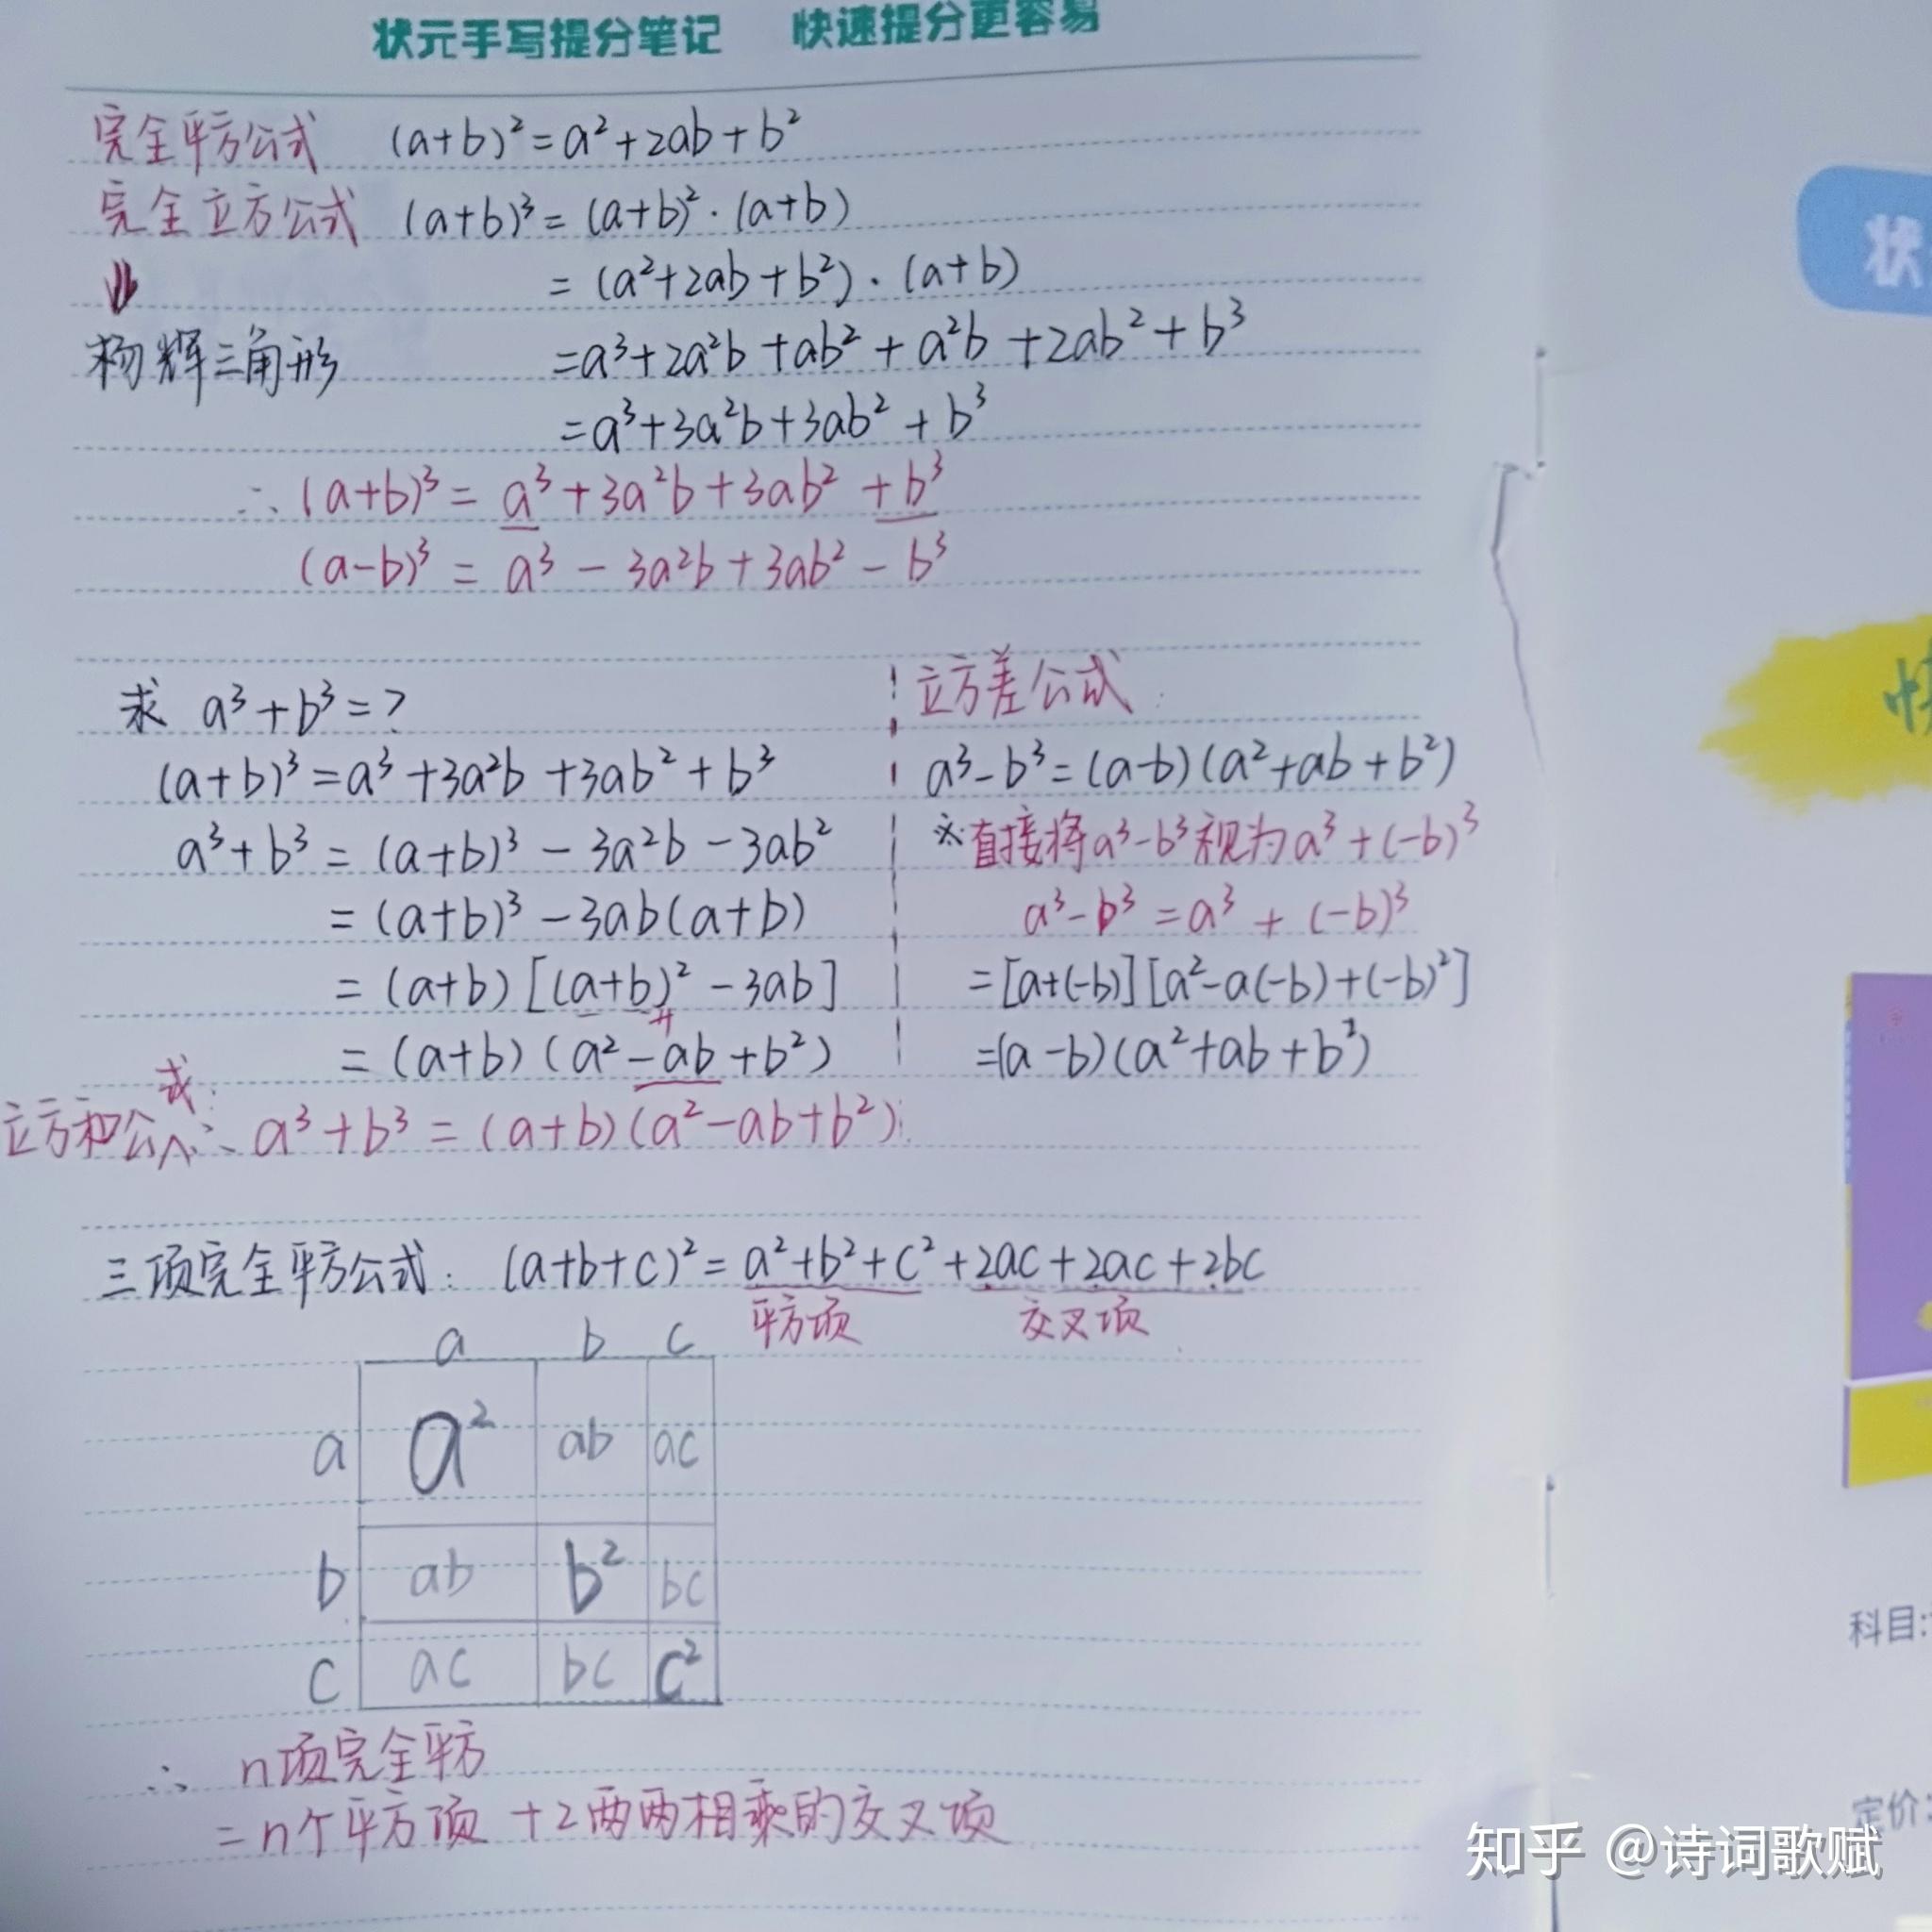 状元手写提分笔记 快速提分更容易
完全平方公式 (a+b)²=a²+2ab+b²
完全立方公式 (a+b)³=(a+b)²·(a+b)
⇓ =(a²+2ab+b²)·(a+b)
杨辉三角形 =a³+2a²b+ab²+a²b+2ab²+b³
=a³+3a²b+3ab²+b³
∴(a+b)³=a³+3a²b+3ab²+b³
(a-b)³=a³-3a²b+3ab²-b³
求 a³+b³=?
(a+b)³=a³+3a²b+3ab²+b³
a³+b³=(a+b)³-3a²b-3ab²
=(a+b)³-3ab(a+b)
=(a+b)[(a+b)²-3ab]
=(a+b)(a²-ab+b²)
立方和公式:∴a³+b³=(a+b)(a²-ab+b²)
立方差公式:
a³-b³=(a-b)(a²+ab+b²)
※直接将a³-b³视为a³+(-b)³
a³-b³=a³+(-b)³
=[a+(-b)][a²-a(-b)+(-b)²]
=(a-b)(a²+ab+b²)
三项完全平方公式:(a+b+c)²=a²+b²+c²+2ac+2ac+2bc
平方项 交叉项
a b c
a a² ab ac
b ab b² bc
c ac bc c²
∴ n项完全平方
=n个平方项+2两两相乘的交叉项
状
快
科目:
定价:
知乎 @诗词歌赋